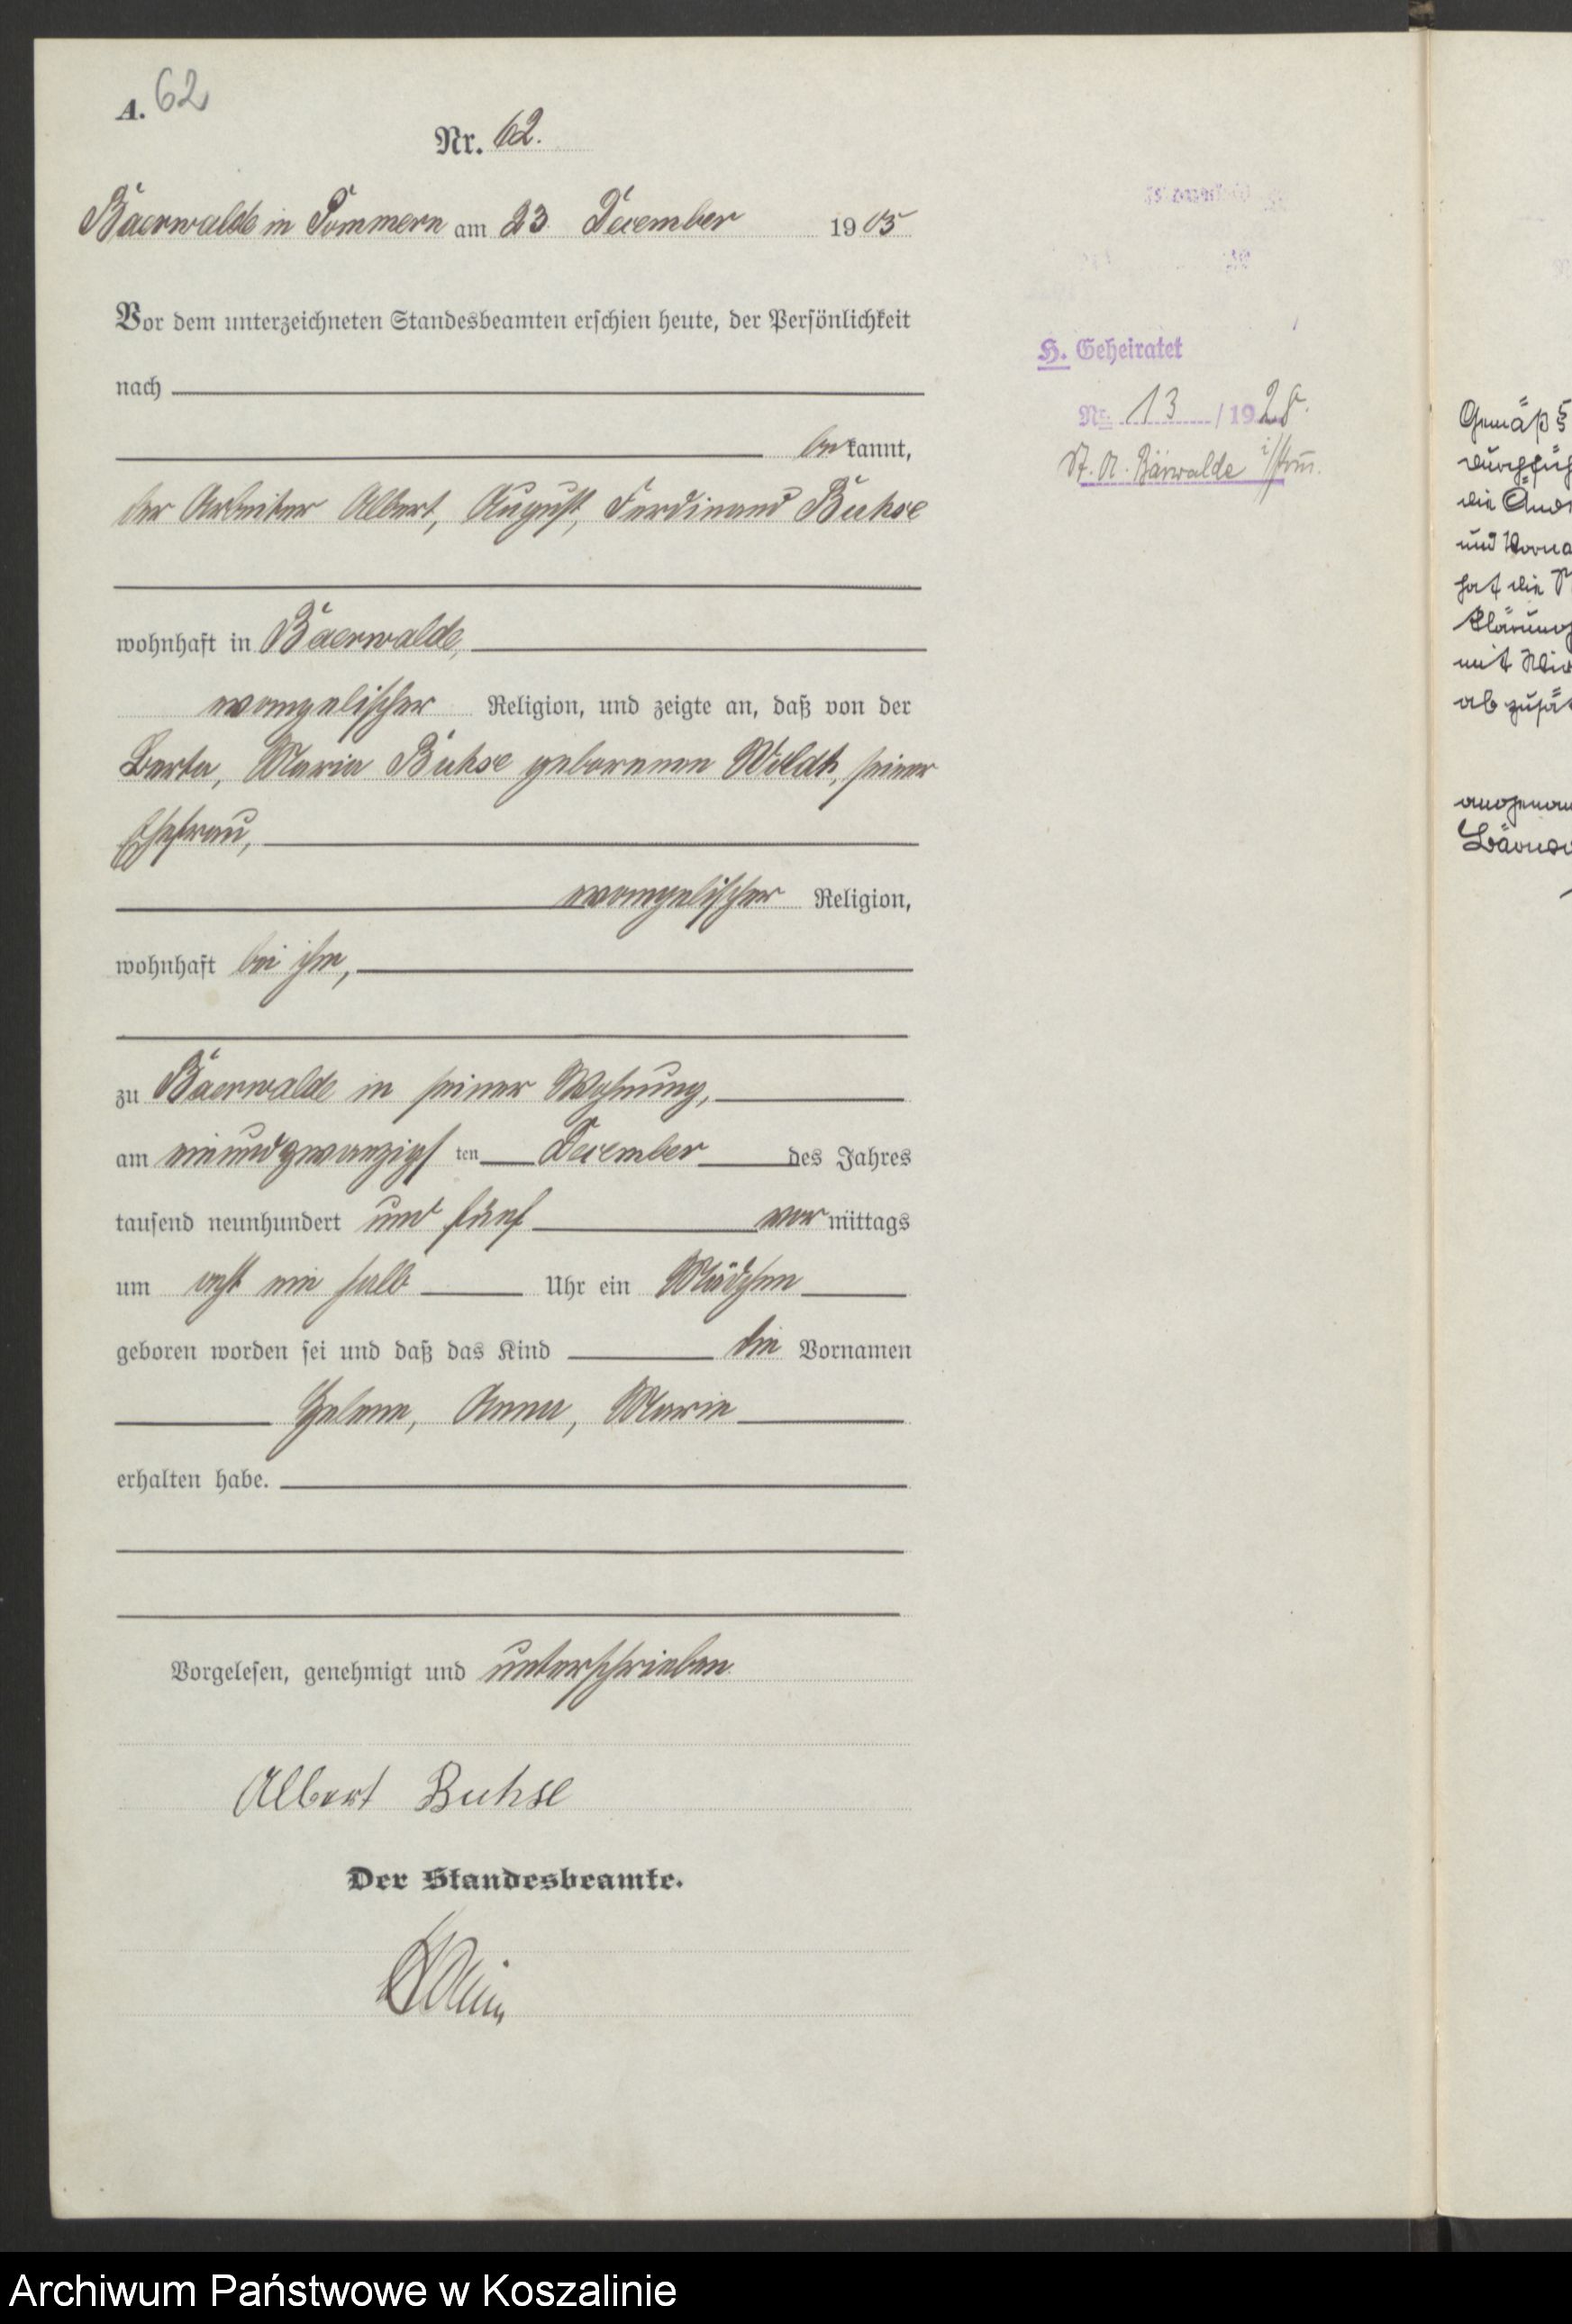 A. 62
Nr. 62.
Baerwalde in Pommern am 23. December 1905
Vor dem unterzeichneten Standesbeamten erschien heute, der Persönlichkeit
nach
bekannt,
der Arbeiter Albert, August, Ferdinand Buhse
wohnhaft in Baerwalde,
evangelischer Religion, und zeigte an, daß von der
Berta, Maria Buhse geborenen Woldt, seiner
Ehefrau,
evangelischer Religion,
wohnhaft bei ihm,
zu Baerwalde in seiner Wohnung,
am einundzwanzigsten December des Jahres
tausend neunhundert und fünf vormittags
um acht ein halb Uhr ein Mädchen
geboren worden sei und daß das Kind die Vornamen
Helene, Anna, Marie
erhalten habe.
Vorgelesen, genehmigt und unterschrieben
Albert Buhse
Der Standesbeamte.
H. Geheiratet
Nr. 13 / 1928.
St. A. Bärwalde i/Pom.
Gemäß §
durchfüh
die Änd
und Vorna
hat die
klärung
mit
ab
angenom
Archiwum Państwowe w Koszalinie